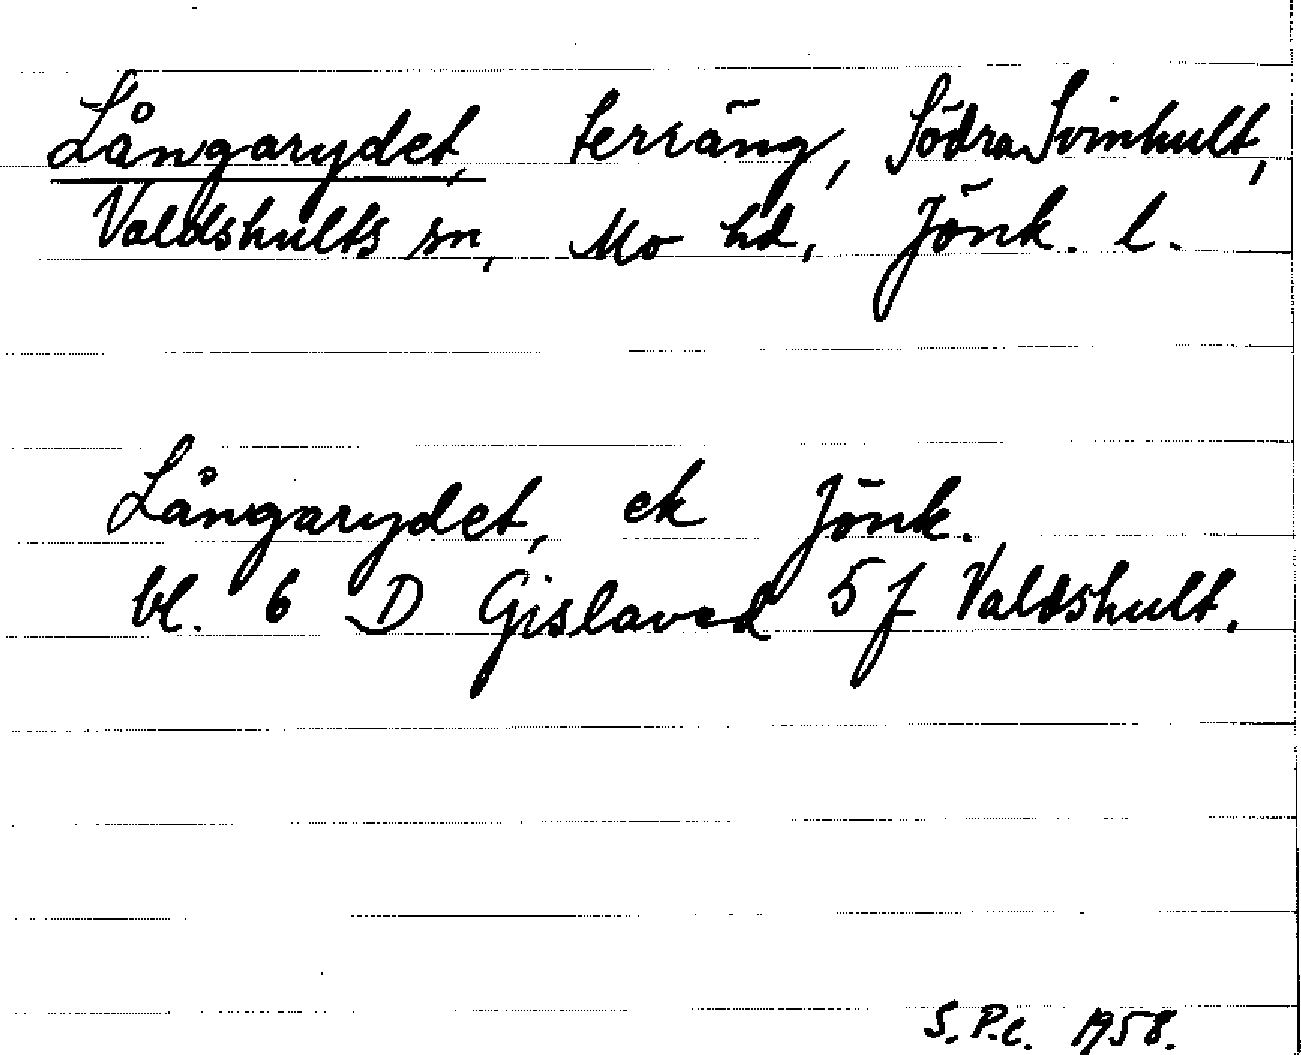 Långarydet, terräng, Södra Svinhult,
Valdshults sn, Mo hd, Jönk. l.
Långarydet, ek Jönk.
bl. 6 D Gislaved 5 f Valdshult.
S.P.C. 1958.